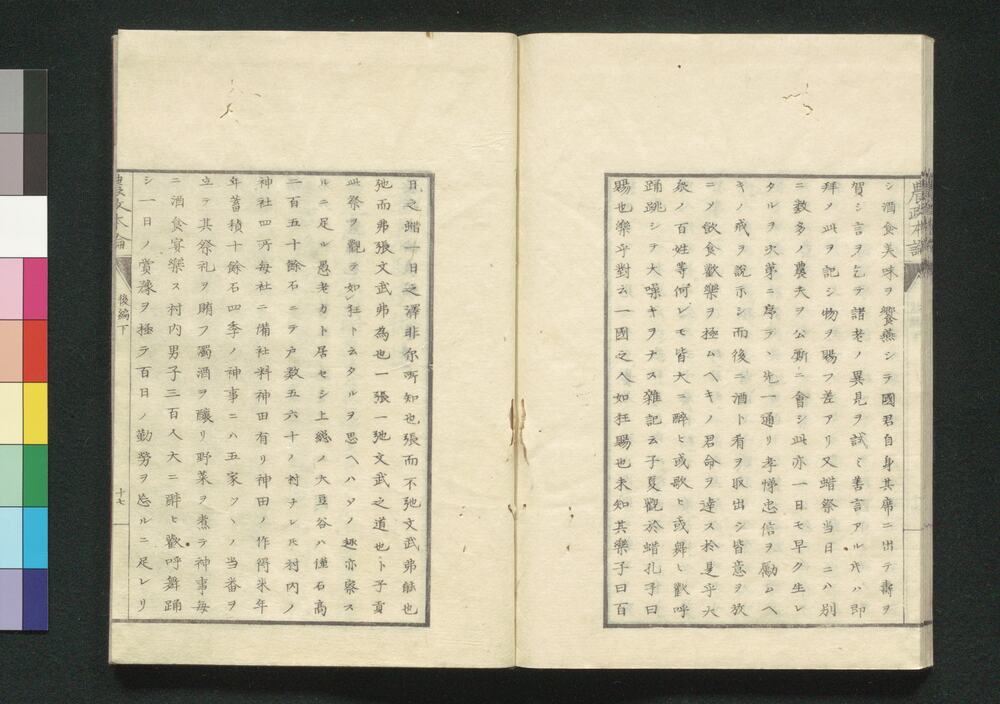 農政本論
シ酒食美味ヲ饗燕シテ國君自身其席ニ出テ壽ヲ
賀シ言ヲ乞テ諸老ノ異見ヲ試ミ善言アル寸ハ即
拜メ此ヲ記シ物ヲ賜フ差アリ又蜡祭当日ニハ別
ニ數多ノ農夫ヲ公廨ニ會シ此亦一日モ早ク生レ
タルヲ次第ニ序テ、先一通リ孝悌忠信ヲ勵ムヘ
キノ戒ヲ説示シ而後ニ酒ト肴ヲ取出シ皆意ヲ放
ニメ飲食歡樂ヲ極ムヘキノ君命ヲ達ス於是乎大
衆ノ百姓等何レモ皆大ニ醉ヒ或歌ヒ或舞ヒ歡呼
踊跳シテ大噪キヲナス雜記云子夏觀於蜡孔子曰
賜也樂乎對云一國之人如狂賜也未知其樂子曰百
日之蜡一日之澤非尓所知也張而不弛文武弗能也
弛而弗張文武弗為也一張一弛文武之道也ト子貢
此祭ヲ觀テ如狂ト云タルヲ思ヘハソノ趣亦察ス
ルニ足ル愚老カト居セシ上総ノ大豆谷ハ僅石高
二百五十餘石ニテ戸數五六十ノ村ナレ𪜈村内ノ
神社四所毎社ニ備社料神田有リ神田ノ作得米年
年蓄積十餘石四季ノ神事ニハ五家ツヽノ当番ヲ
立テ其祭礼ヲ賄フ濁酒ヲ釀リ野菜ヲ煮テ神事毎
ニ酒食宴樂ス村内男子三百人大ニ醉ヒ歡呼舞踊
シ一日ノ賞豫ヲ極テ百日ノ勤勞ヲ忘ルニ足レリ
農政本論
後編下
十七